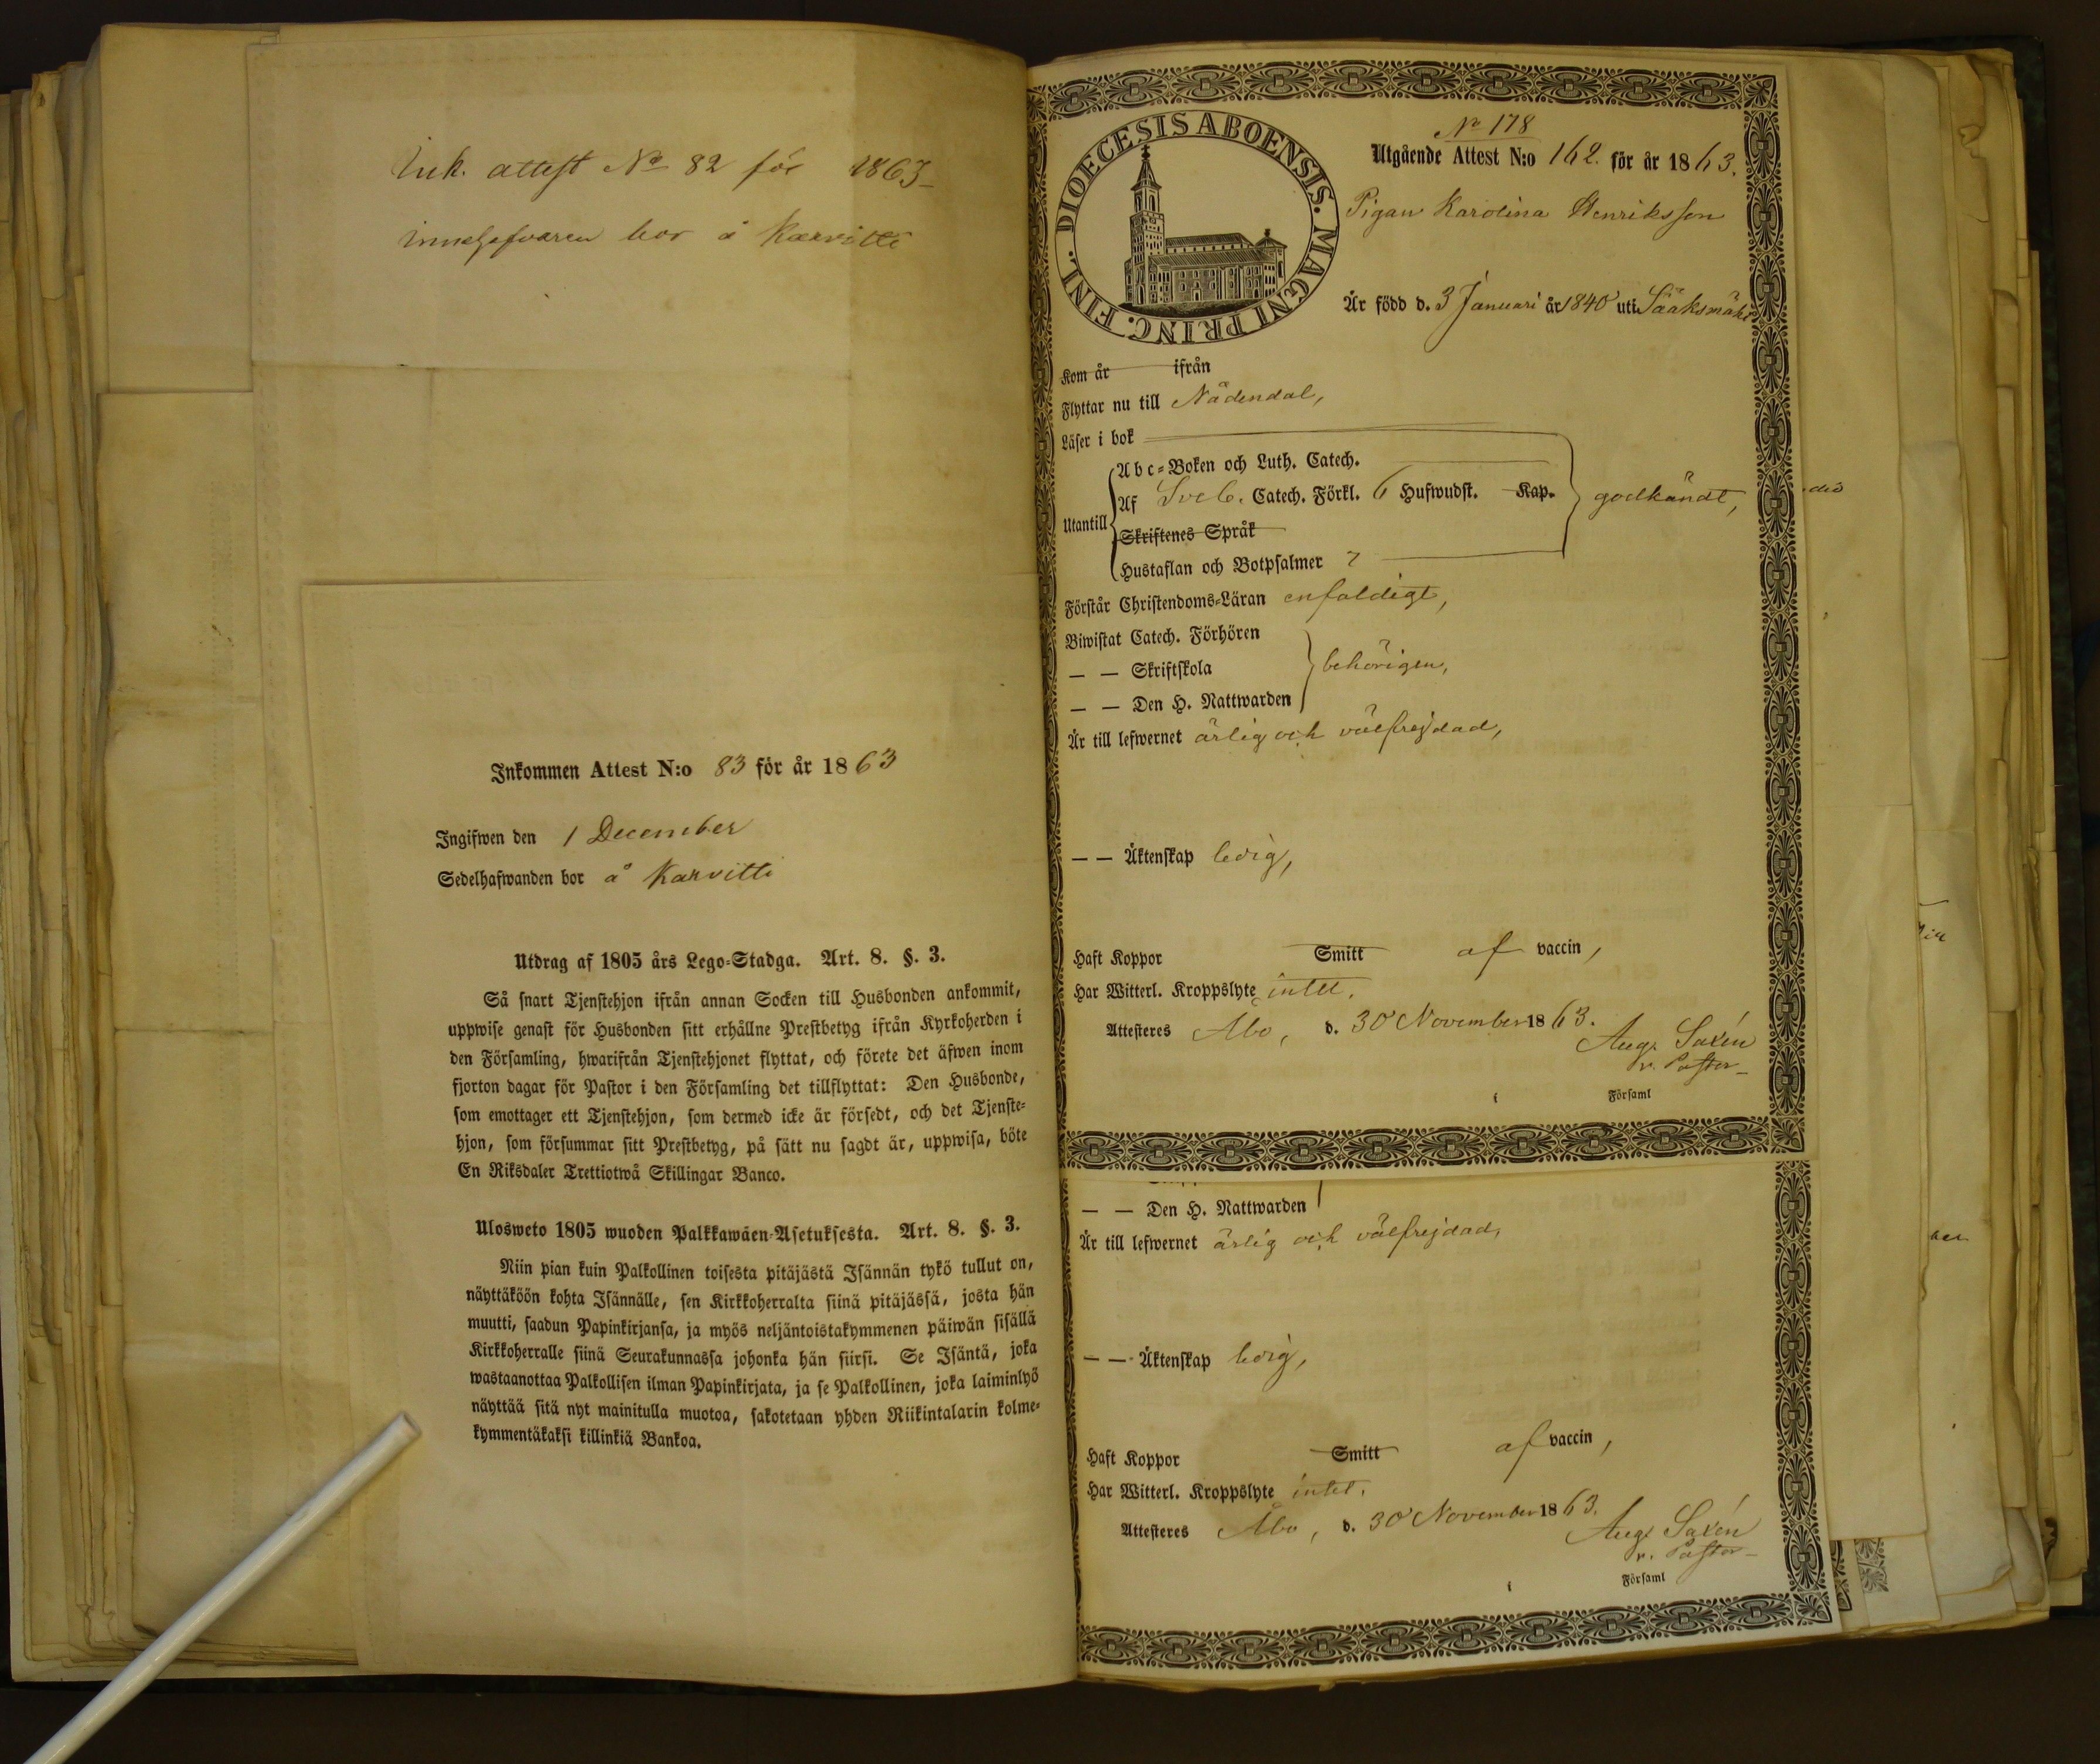 Ink. attest No 82 för 1863
innehafvaren bor å Karvitti
Inkommen Attest N:o 83 för år 1863
Ingifwen den 1 December
Sedelhafwanden bor å Karvitti
Utdrag af 1805 års Lego-Stadga. Art. 8. §. 3.
Så snart Tjenstehjon ifrån annan Socken till Husbonden ankommit,
uppwise genast för Husbonden sitt erhållne Prestbetyg ifrån Kyrkoherden i
den Församling, hwarifrån Tjenstehjonet flyttat, och förete det äfwen inom
fjorton dagar för Pastor i den Församling det tillflyttat: Den Husbonde,
som emottager ett Tjenstehjon, som dermed icke är försedt, och det Tjenste-
hjon, som försummar sitt Prestbetyg, på sätt nu sagdt är, uppwisa, böte
En Riksdaler Trettiotwå Skillingar Banco.
Ulosweto 1805 wuoden Palkkawäen-Asetuksesta. Art. 8. §. 3.
Niin pian kuin Palkollinen toisesta pitäjästä Isännän tykö tullut on,
näyttäköön kohta Isännälle, sen Kirkkoherralta siinä pitäjässä, josta hän
muutti, saadun Papinkirjansa, ja myös neljäntoistakymmenen päiwän sisällä
Kirkkoherralle siinä Seurakunnassa johonka hän siirsi. Se Isäntä, joka
wastaanottaa Palkollisen ilman Papinkirjata, ja se Palkollinen, joka laiminlyö
näyttää sitä nyt mainitulla muotoa, sakotetaan yhden Riikintalarin kolme-
kymmentäkaksi killinkiä Bankoa.
DIOECESIS ABOENSIS. MAGNI PRINC. FINL.
No 178
Utgående Attest N:o 162. för år 1863.
Pigan Karolina Henriksson
Är född d. 3 Januari år 1840 uti Sääksmäki
Kom år ifrån
Flyttar nu till Nådendal,
Läser i bok
Utantill
Abc-Boken och Luth. Catech.
Af Sveb. Catech. Förkl. 6 Hufwudst. Kap.
godkändt,
Skriftenes Språk
Hustaflan och Botpsalmer 7
Förstår Christendoms-Läran enfaldigt,
Biwistat Catech. Förhören
— — Skriftskola
behörigen,
— — Den H. Nattwarden
Är till lefwernet ärlig och välfrejdad,
— — Äktenskap ledig,
Haft Koppor Smitt af vaccin,
Har Witterl. Kroppslyte intet.
Attesteres Åbo, d. 30 November 1863.
Aug. Saxén
v. Pastor
i Församl
— — Den H. Nattwarden
Är till lefwernet ärlig och välfrejdad,
— — Äktenskap ledig,
Haft Koppor Smitt af vaccin,
Har Witterl. Kroppslyte intet.
Attesteres Åbo, d. 30 November 1863.
Aug. Saxén
v. Pastor
i Församl